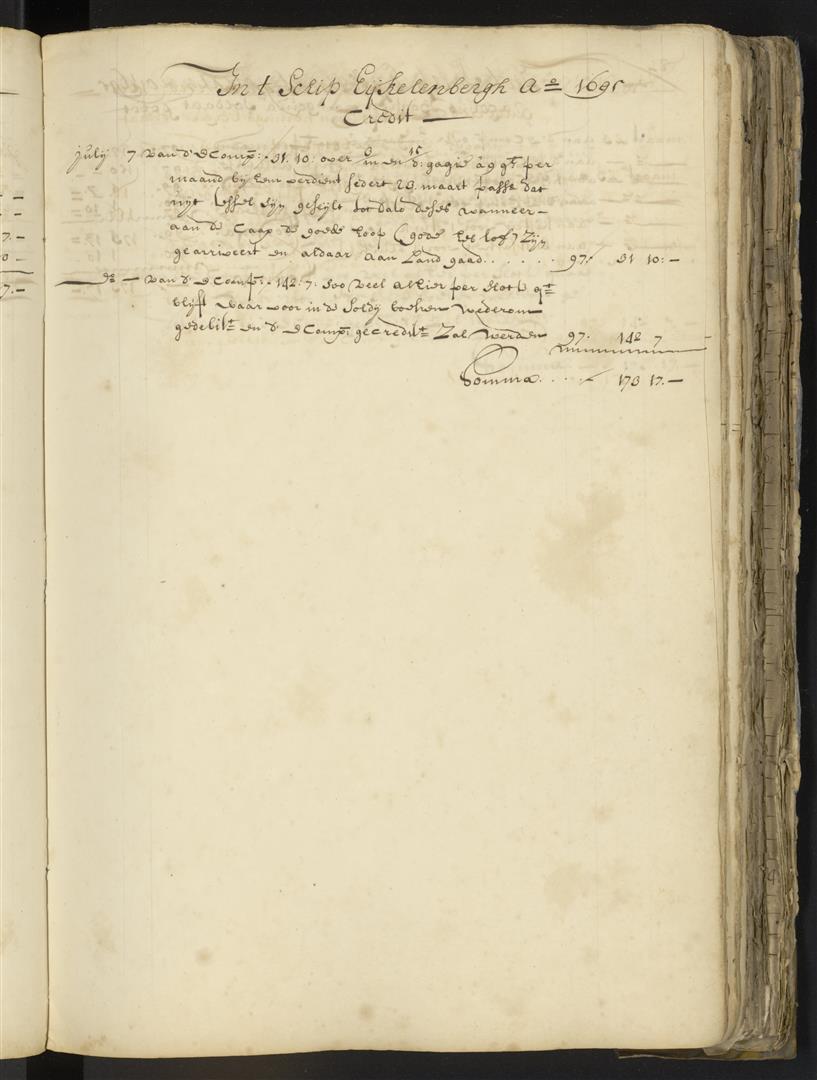 7.-
0-
7.-
In t Schip Eijkelenbergh Aº 1695
Credit
July 7 van d' E Comp: ƒ 31. 10: over 3/m en 15/d: gagie à 9 gl per
maand bij hem verdient sedert 23. maart passo dat
uijt Tessel sijn geseijlt tot dato deses wanneer
aan de Caap de goede hoop (gode zij lof) zijn
gearriveert en aldaar aan Land gaad. . . . . . 97. 31 10:-
do - van d' E Comp: ƒ 142. 7: soo veel alhier per slot te qt
blijft waar voor in de soldij boeken wederom
gedebitt en d' E Comp: gecreditt zal werden 97. 142 7 -
Somma. . . . ƒ 173 17.-